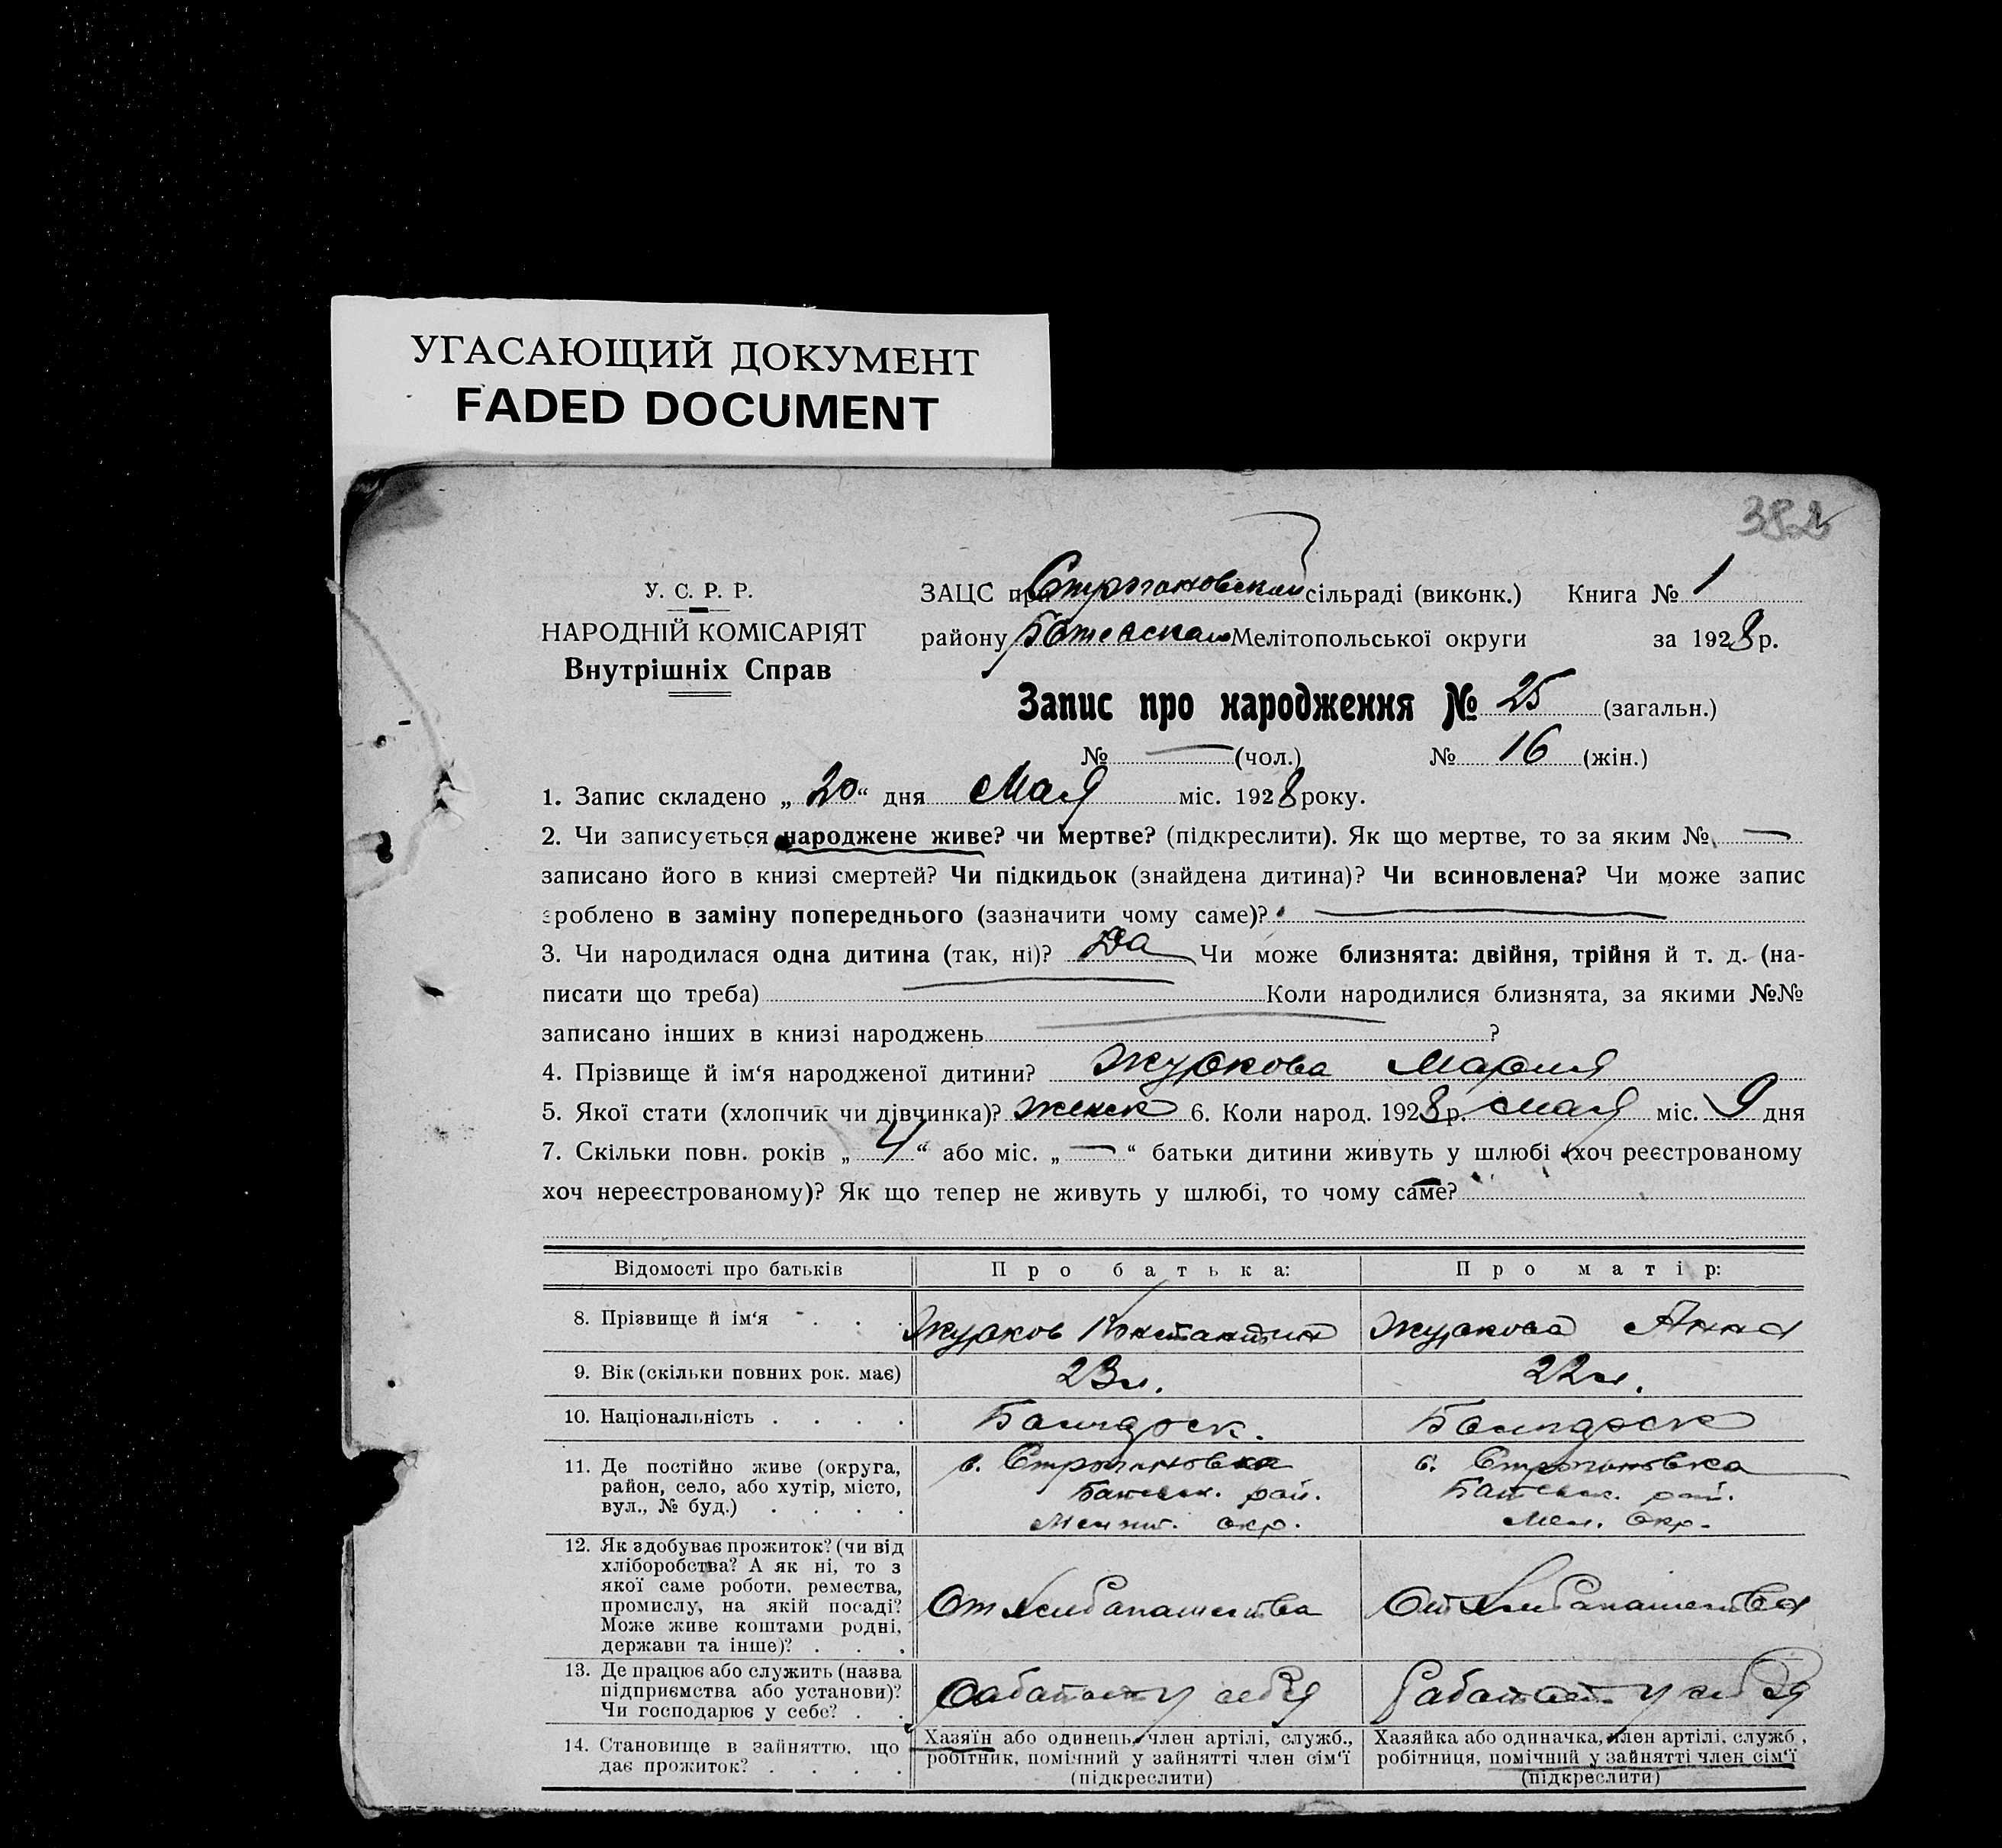 УГАСАЮЩИЙ ДОКУМЕНТ
FADED DOCUMENT
382
У. С. Р. Р.
НАРОДНІЙ КОМІСАРІЯТ
Внутрішніх Справ
ЗАЦС при Строгановской сільраді (виконк.) Книга № 1
району Мелітопольської округи за 1928 р.
Запис про народження № 25 (загальн.)
№ — (чол.) № 16 (жін.)
1. Запис складено „ 20 “ дня Мая міс. 1928 року.
2. Чи записується народжене живе? чи мертве? (підкреслити). Як що мертве, то за яким № —
записано його в книзі смертей? Чи підкидьок (знайдена дитина)? Чи всиновлена? Чи може запис
зроблено в заміну попереднього (зазначити чому саме)? —
3. Чи народилася одна дитина (так, ні)? Да Чи може близнята: двійня, трійня й т. д. (на-
писати що треба) — Коли народилися близнята, за якими №№
записано інших в книзі народжень — ?
4. Прізвище й ім‘я народженої дитини? Журкова Мария
5. Якої стати (хлопчик чи дівчинка)? женск 6. Коли народ. 1928 р. мая міс. 9 дня
7. Скільки повн. років „ 4 “ або міс. „ — “ батьки дитини живуть у шлюбі (хоч реєстрованому
хоч нереєстрованому)? Як що тепер не живуть у шлюбі, то чому саме?
Відомості про батьків Про батька: Про матір:
8. Прізвище й ім‘я . . . Журков Константин Журкова Анна
9. Вік (скільки повних рок. має) 23 л. 22 л.
10. Національність . . . . Болгарск. Болгарск
11. Де постійно живе (округа, район, село, або хутір, місто, вул., № буд.) . . . .
с. Строгановка
рай.
Мелит. окр.
с. Строгановка
рай.
Мел. Окр.
12. Як здобуває прожиток? (чи від
хліборобства? А як ні, то з
якої саме роботи, ремества,
промислу, на якій посаді?
Може живе коштами родні,
держави та інше)? . . .
От хлебапашества
От хлебапашества
13. Де працює або служить (назва
підприємства або установи)?
Чи господарює у себе? . .
Работает у себя
Работает у себя
14. Становище в зайняттю, що
дає прожиток? . . . .
Хазяїн або одинець, член артілі, служб.,
робітник, помічний у зайнятті член сім‘ї
(підкреслити)
Хазяйка або одиначка, член артілі, служб.,
робітниця, помічний у зайнятті член сім‘ї
(підкреслити)